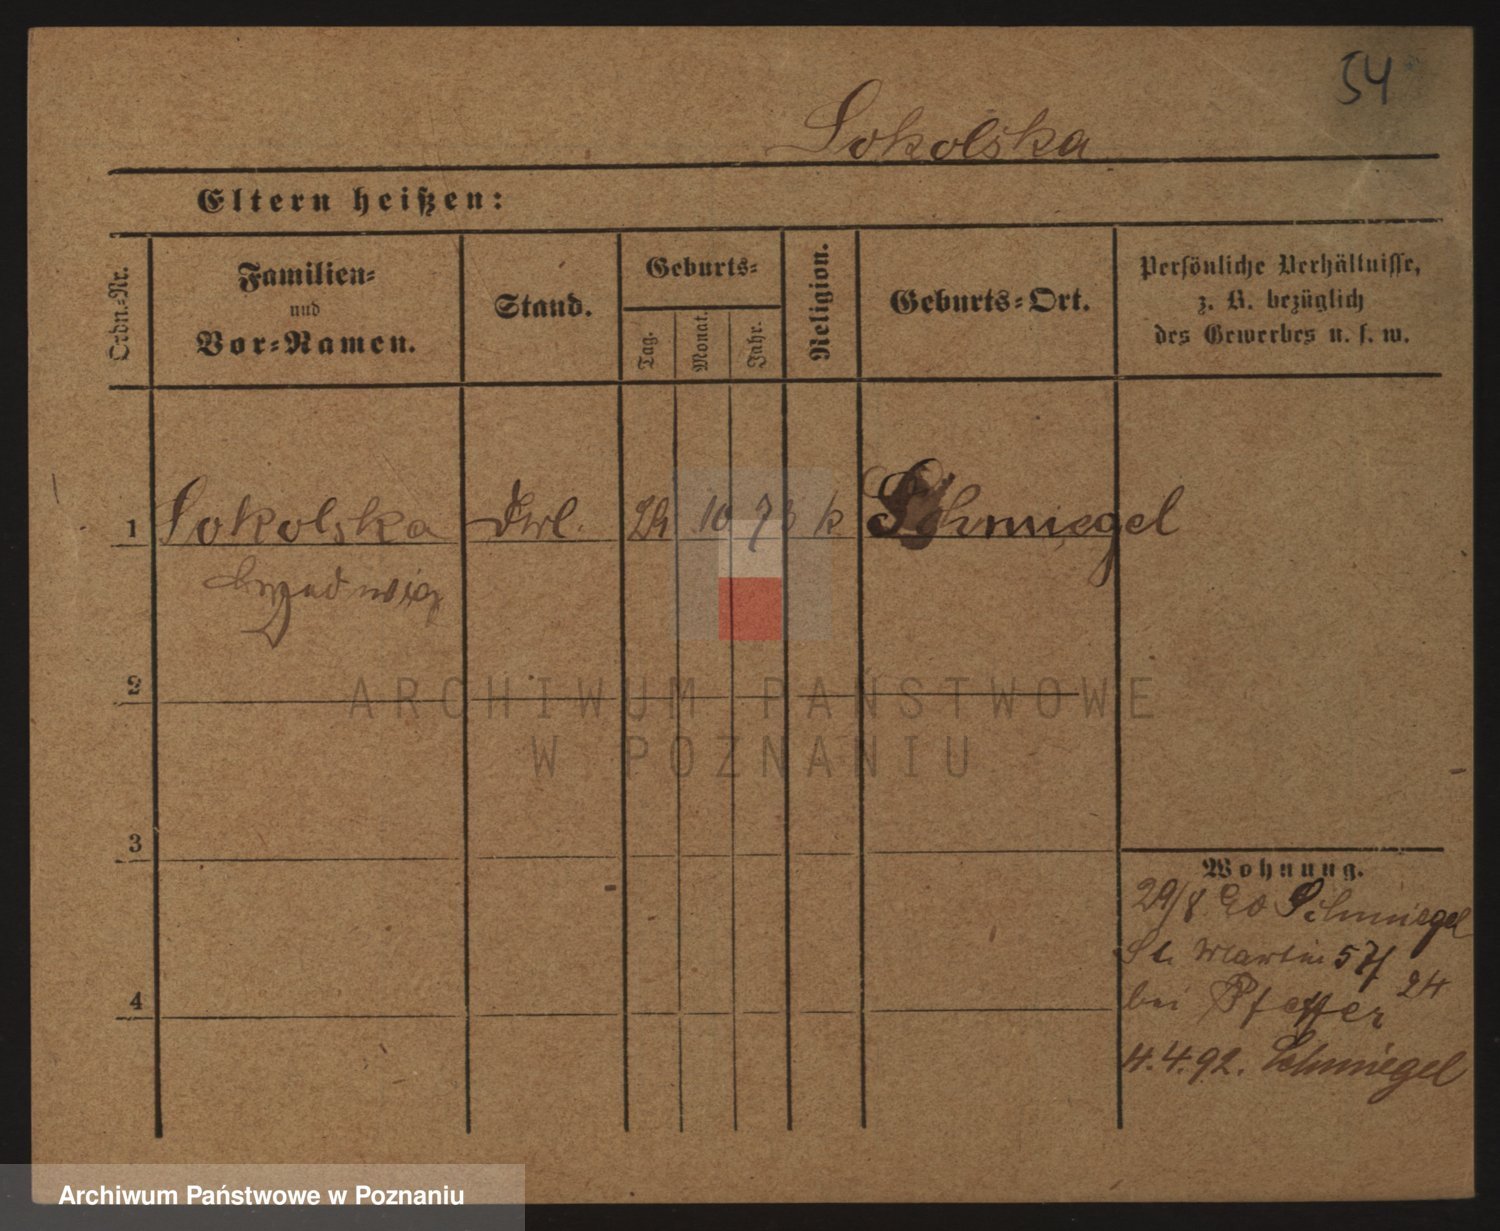 54
Sokolska
Eltern heißen:
Ordn.-Nr.
Familien-
und
Vor-Namen.
Stand.
Geburts-
Tag.
Monat.
Jahr.
Religion.
Geburts-Ort.
Persönliche Verhältnisse,
z. B. bezüglich
des Gewerbes u. s. w.
1 Sokolska 29 10 73 k Schmiegel
2
ARCHIWUM PAŃSTWOWE
W POZNANIU
3
Wohnung.
29/8 90 Schmiegel
St. Martin 57/
24
bei Pfeffer
4
4.4.92. Schmiegel
Archiwum Państwowe w Poznaniu